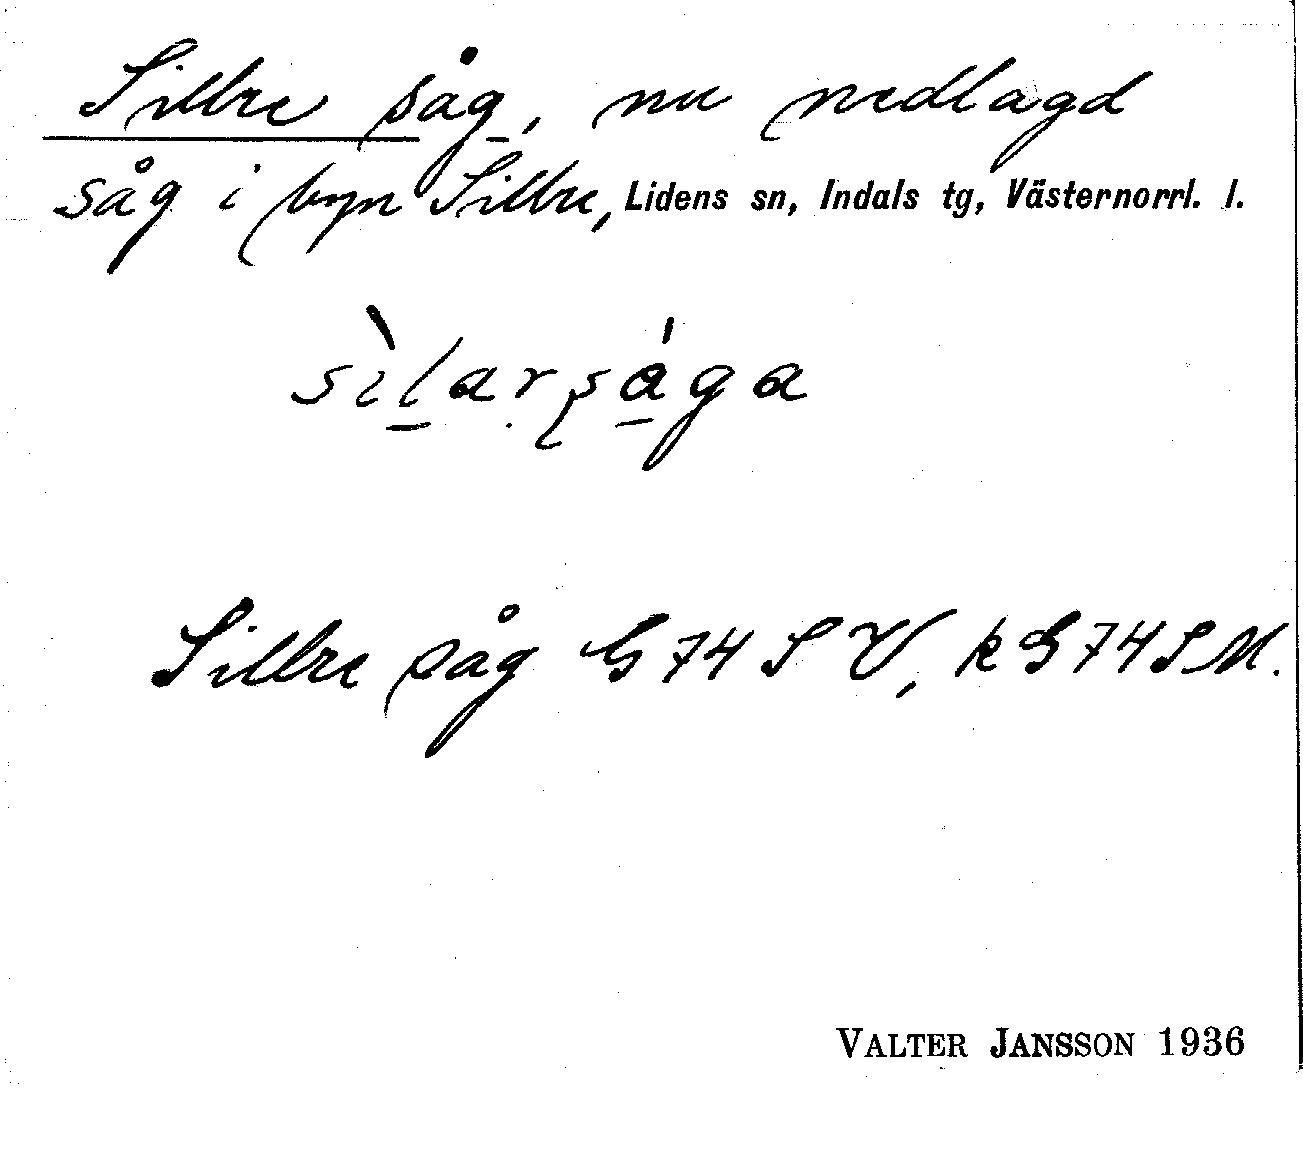 Sillre såg, nu nedlagd
såg i byn Sillre, Lidens sn, Indals tg, Västernorrl. l.
sìlarsåga
Sillre såg G74SV, k G74SM.
VALTER JANSSON 1936